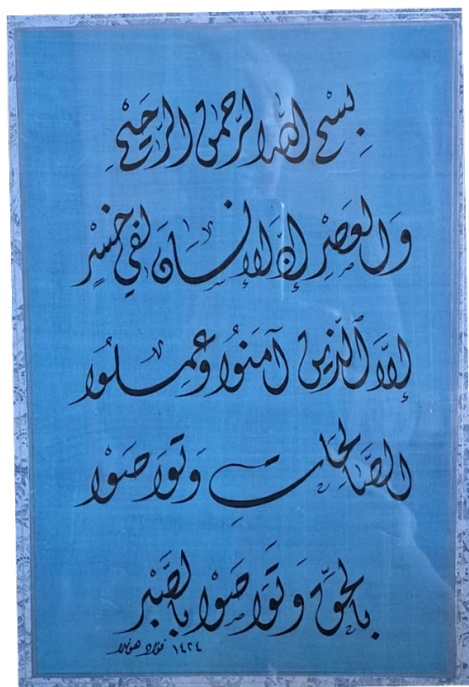 بِسْمِ اللّٰه الرَّحمن الرَّحَيْمِ
وَالعَصْرِ إِنَّ الإِنسَانَ لَفي خُسْرٍ
إِلاَّ الَّذِينَ آمَنُوا وَعَمِلُوا
الصَّالِحَاتِ وَتَوَاصَوْا
بِالحَقِّ وَتَوَاصَوْا بِالصَّبْرِ
١٤٢٤